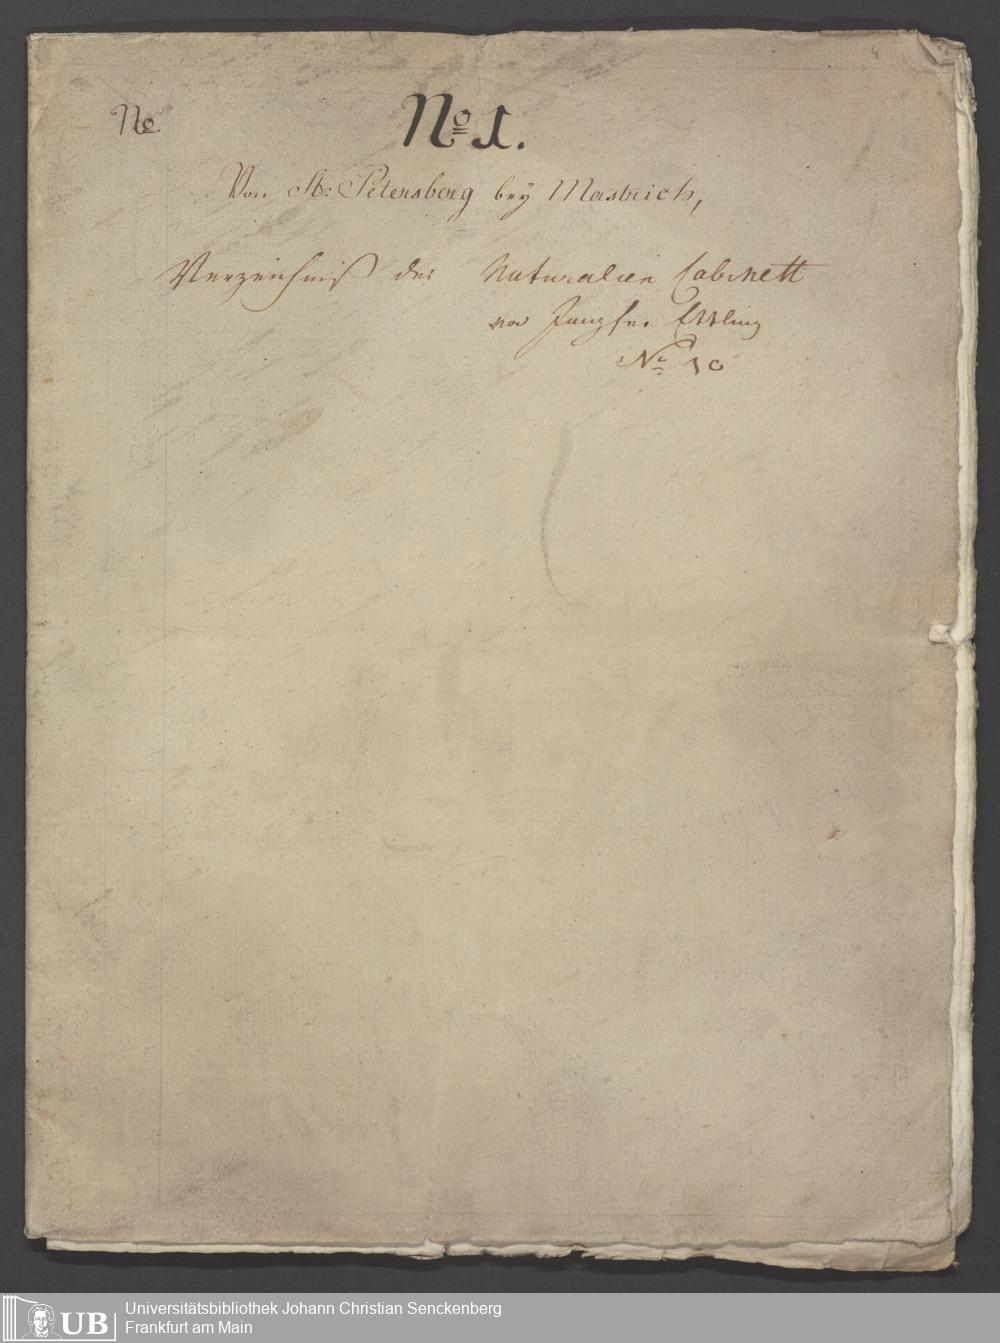 No
No 1.
Von St: Petersberg beÿ Mastrich,
Verzeichniß der Naturalien Cabinett
von Jungfer Ettling
No 10
UB
Universitätsbibliothek Johann Christian Senckenberg
Frankfurt am Main